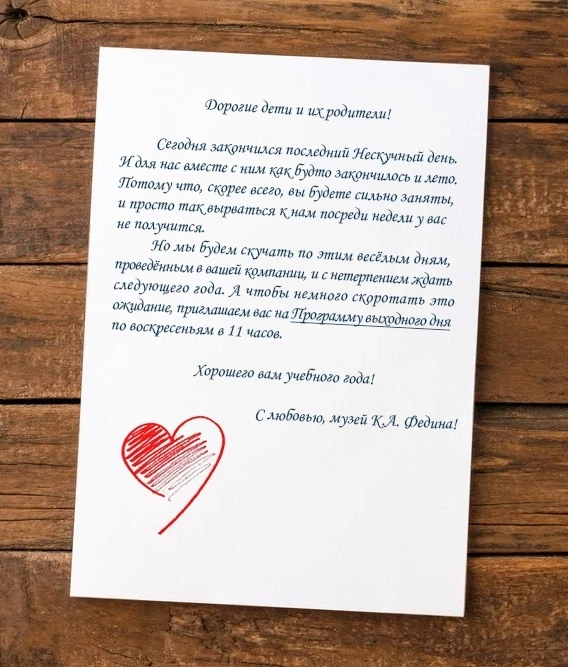 Дорогие дети и их родители!
Сегодня закончился последний Нескучный день.
И для нас вместе с ним как будто закончилось и лето.
Потому что, скорее всего, вы будете сильно заняты,
и просто так вырваться к нам посреди недели у вас
не получится.
Но мы будем скучать по этим весёлым дням,
проведённым в вашей компании, и с нетерпением ждать
следующего года. А чтобы немного скоротать это
ожидание, приглашаем вас на Программу выходного дня
по воскресеньям в 11 часов.
Хорошего вам учебного года!
С любовью, музей К.А. Федина!